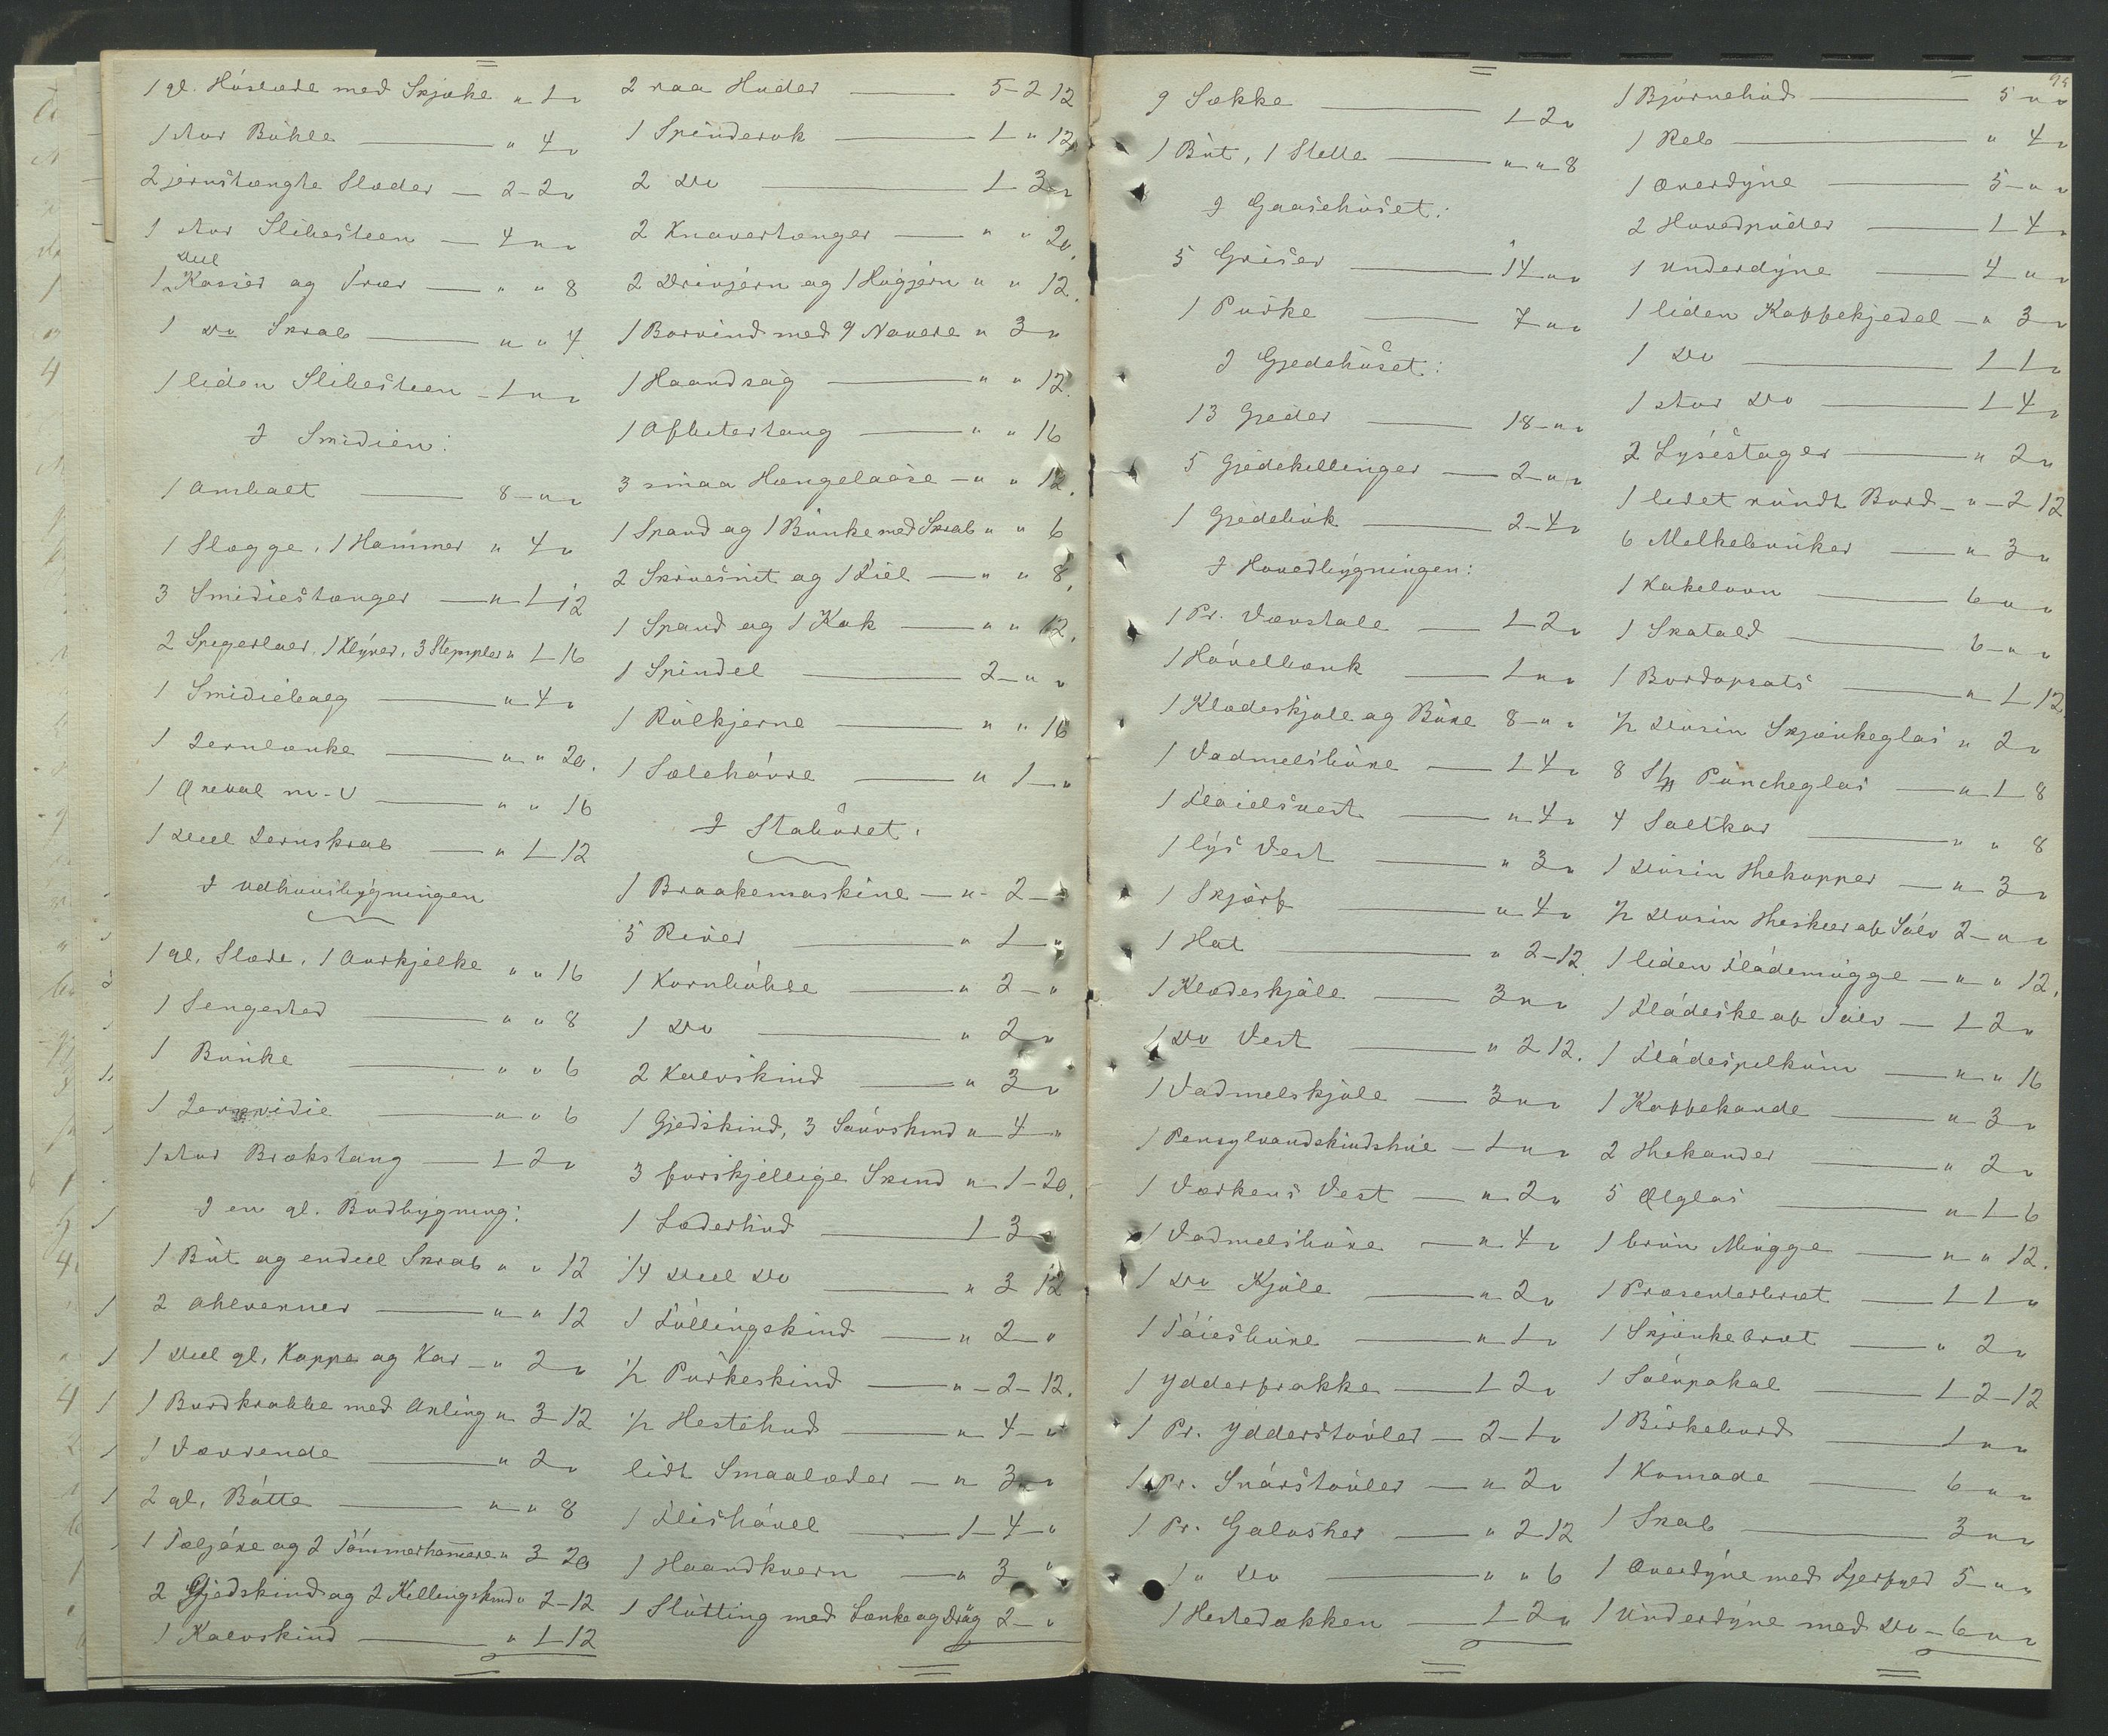 1 gl. Høslæde med Skjæke " 1 "
1 stor Bøhle " 4 "
2 jernstængte Slæder 2-2 "
1 stor Slibesteen 4 " "
1 Deel Kasser og Trær " " 8
1 Do Skrab " " 4
1 liden Slibesteen 1 " "
I Smidien:
1 Ambalt 8 " "
1 Slægge, 1 Hammer " 4 "
3 Smidiestænger " 1-12
2 Spigerlaer, 1 Klyver, 3 Stempler " 1-16
1 Smidiebælg " 4 "
1 Jernlænke " " 20.
1 Greval m. V " " 16
1 Deel Jernskrab " 1-12
I Udhuusbygningen
1 gl. Slæde, 1 Aurkjelke " " 16
1 Sengested " " 8
1 Bunke " " 6
1 Jernvidie " " 6
1 stor Brækstang 1-2 "
I en gl. Bodbygning:
1 Bøt og endeel Skrab " " 12
2 Ahlverner " " 12
1 Deel gl. Kopper og Kar " 2 "
1 Bordkrakke med Axling " 3-12
1 Vævrende " 2 "
2 gl. Bøtte " " 8
1 Tæljøxe og 2 Tømmerhamere " 3 20
2 Gjedskind og 2 Killingskind " 2-12
1 Kalvskind " 1-12
2 raa Huder 5-2 12
1 Spinderok 1 " 12
2 Do 1 3 "
2 Knavertænger " " 20.
2 Drivjern og 1 Hugjern " " 12.
1 Borvind med 9 Navere " 3 "
1 Haandsag " " 12.
1 Afbitertang " " 16
3 smaa Hængelaase " " 12.
1 Spand og 1 Bunke med Skrab " " 6
2 Skruesnit og 1 Fiil " " 8.
1 Spand og 1 Kak " " 12.
1 Spindel 2 " "
1 Rulkjerne " " 16
1 Sælehøvre " 1 "
I Staburet:
1 Braakemaskine " 2 "
5 River " 1 "
1 Kornbøhle " 2 "
1 Do " 2 "
2 Kalvskind " 3 "
1 Gjedskind, 3 Sauvskind " 4 "
3 forskjellige Skind " 1-20.
1 Læderhud 1 3 "
1/4 Deel Do " 3 12
1 Føllingskind " 2 "
1/2 Purkeskind " 2-12.
1/2 Hestehud " 4 "
lidt Smaalæder " 3 "
1 Flishøvel 1-4 "
1 Haandkvern " 3 "
1 Slutting med Lænke og Drag 2 "
9 Sække 1 2 "
1 Bøt, 1 Stette " " 8
I Gaasehuset:
5 Griser 14 " "
1 Purke 7 " "
I Gjedehuset:
13 Gjeder 18 " "
5 Gjedekillinger 2 " "
1 Gjedebuk 2-4 "
I Hovedbygningen:
1 Pr. Vævstale 1-2 "
1 Høvelbænk 1 " "
1 Klædeskjole og Buxe 8 " "
1 Vadmelsbuxe 1-4 "
1 Fløielsvest " 4 "
1 lys Vest " 3 "
1 Skjærf " 4 "
1 Hat " 2-12
1 Klædeskjole 3 " "
1 Do Vest " 2 12.
1 Vadmelskjole 3 " "
1 Pensylvandskindshue 1 " "
1 Værkens Vest " 2 "
1 Vadmelsbuxe " 4 "
1 Do Kjole " 2 "
1 Tøiesbuxe " 1 "
1 Ydderfrakke 1 2 "
1 Pr. Ydderstøvler 2-1 "
1 Pr. Snørstøvler " 2 "
1 Pr. Galosher " 2 12
1 " Do " " 6
1 Hestedækken 1 2 "
95
1 Bjørnehud 5 " "
1 Reb " 4 "
1 Overdyne 5 " "
2 Hovedpuder 1 4 "
1 Underdyne 4 " "
1 liden Kaffekjedel " 3 "
1 Do 1 1 "
1 stor Do 1 4 "
2 Lysestager " 2 "
1 lidet rundt Bord " 2 12
6 Melkebunker " 3 "
1 Kakelovn 6 " "
1 Skatald 6 " "
1 Bordopsats " 1 12
1/2 Dusin Skjænkeglas " 2 "
8 Stk Puncheglas " 1 8
4 Saltkar " " 8
1 Dusin Thekopper " 3 "
1/2 Dusin Theskeer af Sølv 2 " "
1 liden Flødemugge " " 12.
1 Flødeske af Sølv 1 2 "
1 Flødespelkum " " 16
1 Kaffekande " 3 "
2 Thekander " 2 "
5 Ølglas " 1 6
1 brun Mugge " " 12.
1 Præsenterbræt 1 1 "
1 Skjænkebræt " 2 "
1 Sølvpokal 1 2-12
1 Birkebord 1 " "
1 Komode 6 " "
1 Skab 3 " "
1 Overdyne med Fjerfyld 5 " "
1 Underdyne med Do 6 " "